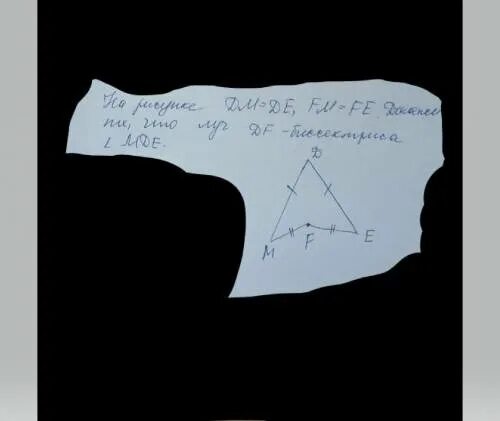 На рисунке DM=DE, FM=FE. Докажи
те, что луч DF - биссектриса
∠ MDE.
D
M
F
E